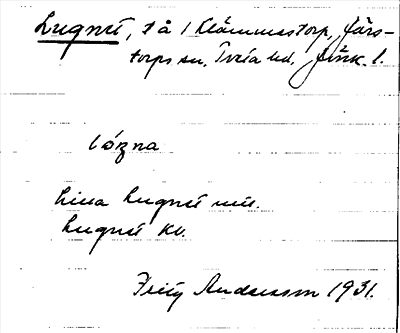 Lugnet, t å / Klämmestorp, Järs-
torps sn, Tveta hd, Jönk. l.
lóʒna
Lilla Lugnet
Lugnet kv.
Fritz Andersson 1931.